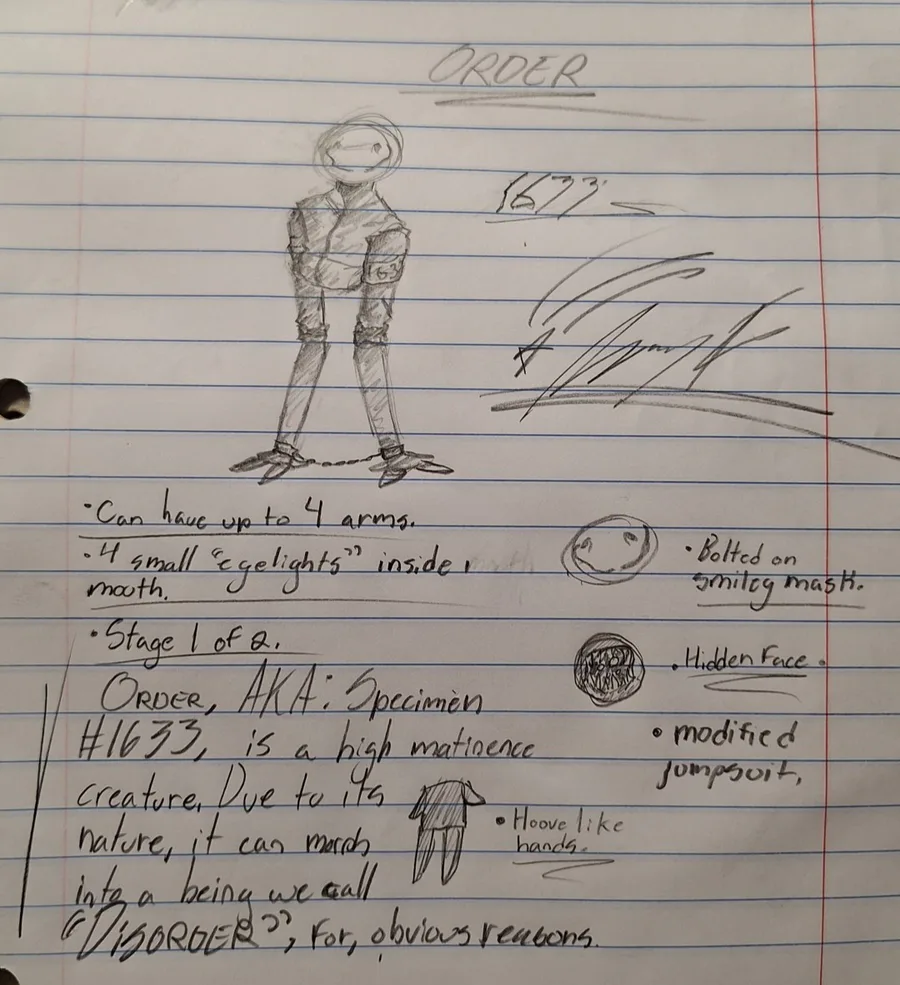 ORDER
1633
163
•Can have up to 4 arms.
•4 small "eyelights" inside
mouth.
•Bolted on
smiley mask.
•Stage 1 of 2.
•Hidden Face•
ORDER, AKA: Specimen
#1633, is a high matinence
creature. Due to its
nature, it can morph
into a being we call
"DISORDER", for, obvious reasons.
•modified
jumpsuit.
•Hoove like
hands.